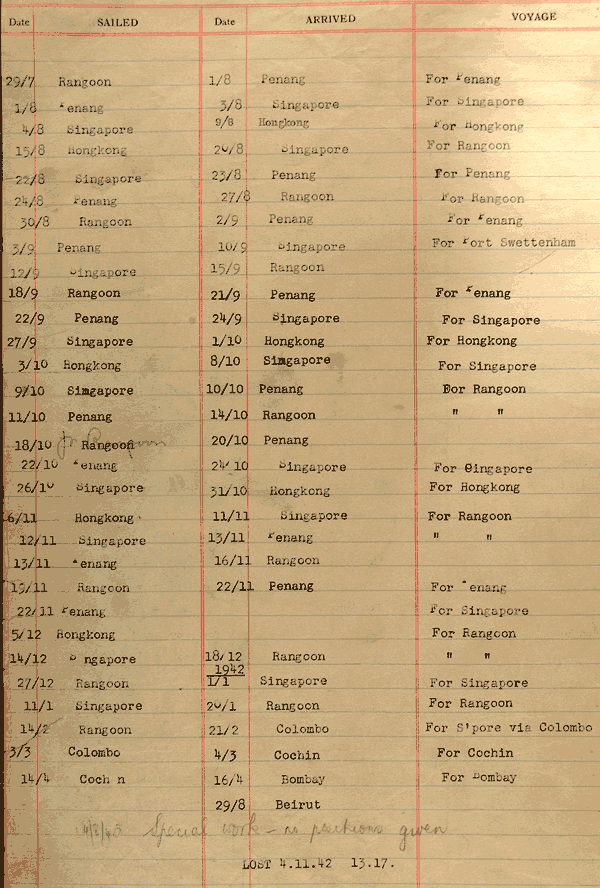 Date SAILED Date ARRIVED VOYAGE
29/7 Rangoon 1/8 Penang For Penang
1/8 Penang 3/8 Singapore For Singapore
4/8 Singapore 9/8 Hongkong For Hongkong
15/8 Hongkong 20/8 Singapore For Rangoon
22/8 Singapore 23/8 Penang For Penang
24/8 Penang 27/8 Rangoon For Rangoon
30/8 Rangoon 2/9 Penang For Penang
3/9 Penang 10/9 Singapore For Port Swettenham
12/9 Singapore 15/9 Rangoon
18/9 Rangoon 21/9 Penang For Penang
22/9 Penang 24/9 Singapore For Singapore
27/9 Singapore 1/10 Hongkong For Hongkong
3/10 Hongkong 8/10 Singapore For Singapore
9/10 Singapore 10/10 Penang For Rangoon
11/10 Penang 14/10 Rangoon " "
18/10 Rangoon 20/10 Penang
22/10 Penang 24/10 Singapore For Singapore
26/10 Singapore 31/10 Hongkong For Hongkong
6/11 Hongkong 11/11 Singapore For Rangoon
12/11 Singapore 13/11 Penang " "
13/11 Penang 16/11 Rangoon
19/11 Rangoon 22/11 Penang For Penang
22/11 Penang For Singapore
5/12 Hongkong For Rangoon
14/12 Singapore 18/12 Rangoon " "
1942
27/12 Rangoon 1/1 Singapore For Singapore
11/1 Singapore 20/1 Rangoon For Rangoon
14/2 Rangoon 21/2 Colombo For S'pore via Colombo
3/3 Colombo 4/3 Cochin For Cochin
14/4 Coch n 16/4 Bombay For Bombay
29/8 Beirut
Special work – no positions given
LOST 4.11.42 13.17.